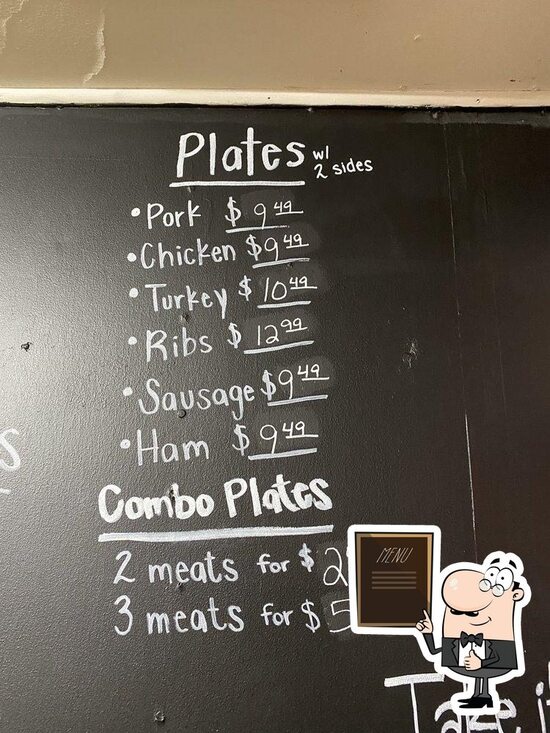 Plates w/
2 sides
• Pork $ 9.49
• Chicken $9.49
• Turkey $ 10.49
• Ribs $ 12.99
• Sausage $9.49
• Ham $ 9.49
Combo Plates
2 meats for $ 2
3 meats for $ 5
MENU